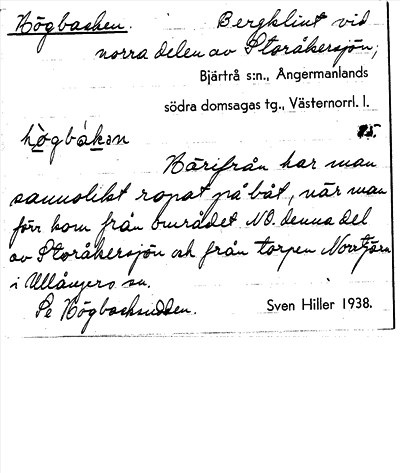 Högbacken. Bergklint vid
norra delen av Storåkersjön;
Bjärtrå s:n., Ångermanlands
södra domsagas tg., Västernorrl. l.
hògbákan
Härifrån har man
sannolikt ropat på båt, när man
förr kom från området NO. denna del
av Storåkersjön och från torpen Norrtjärn
i Ullångers sn.
Se Högbacksudden. Sven Hiller 1938.